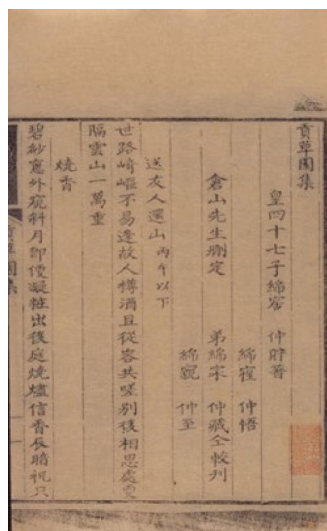 貢草園集
皇四十七子綿𡩀 仲時著
綿㝝 仲悟
倉山先生刪定 弟綿宋 仲藏仝較刋
綿寬 仲至
送友人還山 丙午以下
世路崎嶇不易逢故人樽酒且從容共嗟別後相思處
隔雲山一萬重
燒香
碧紗窓外碗斜月卸慢凝粧出後庭燒燼信香長暗祝只